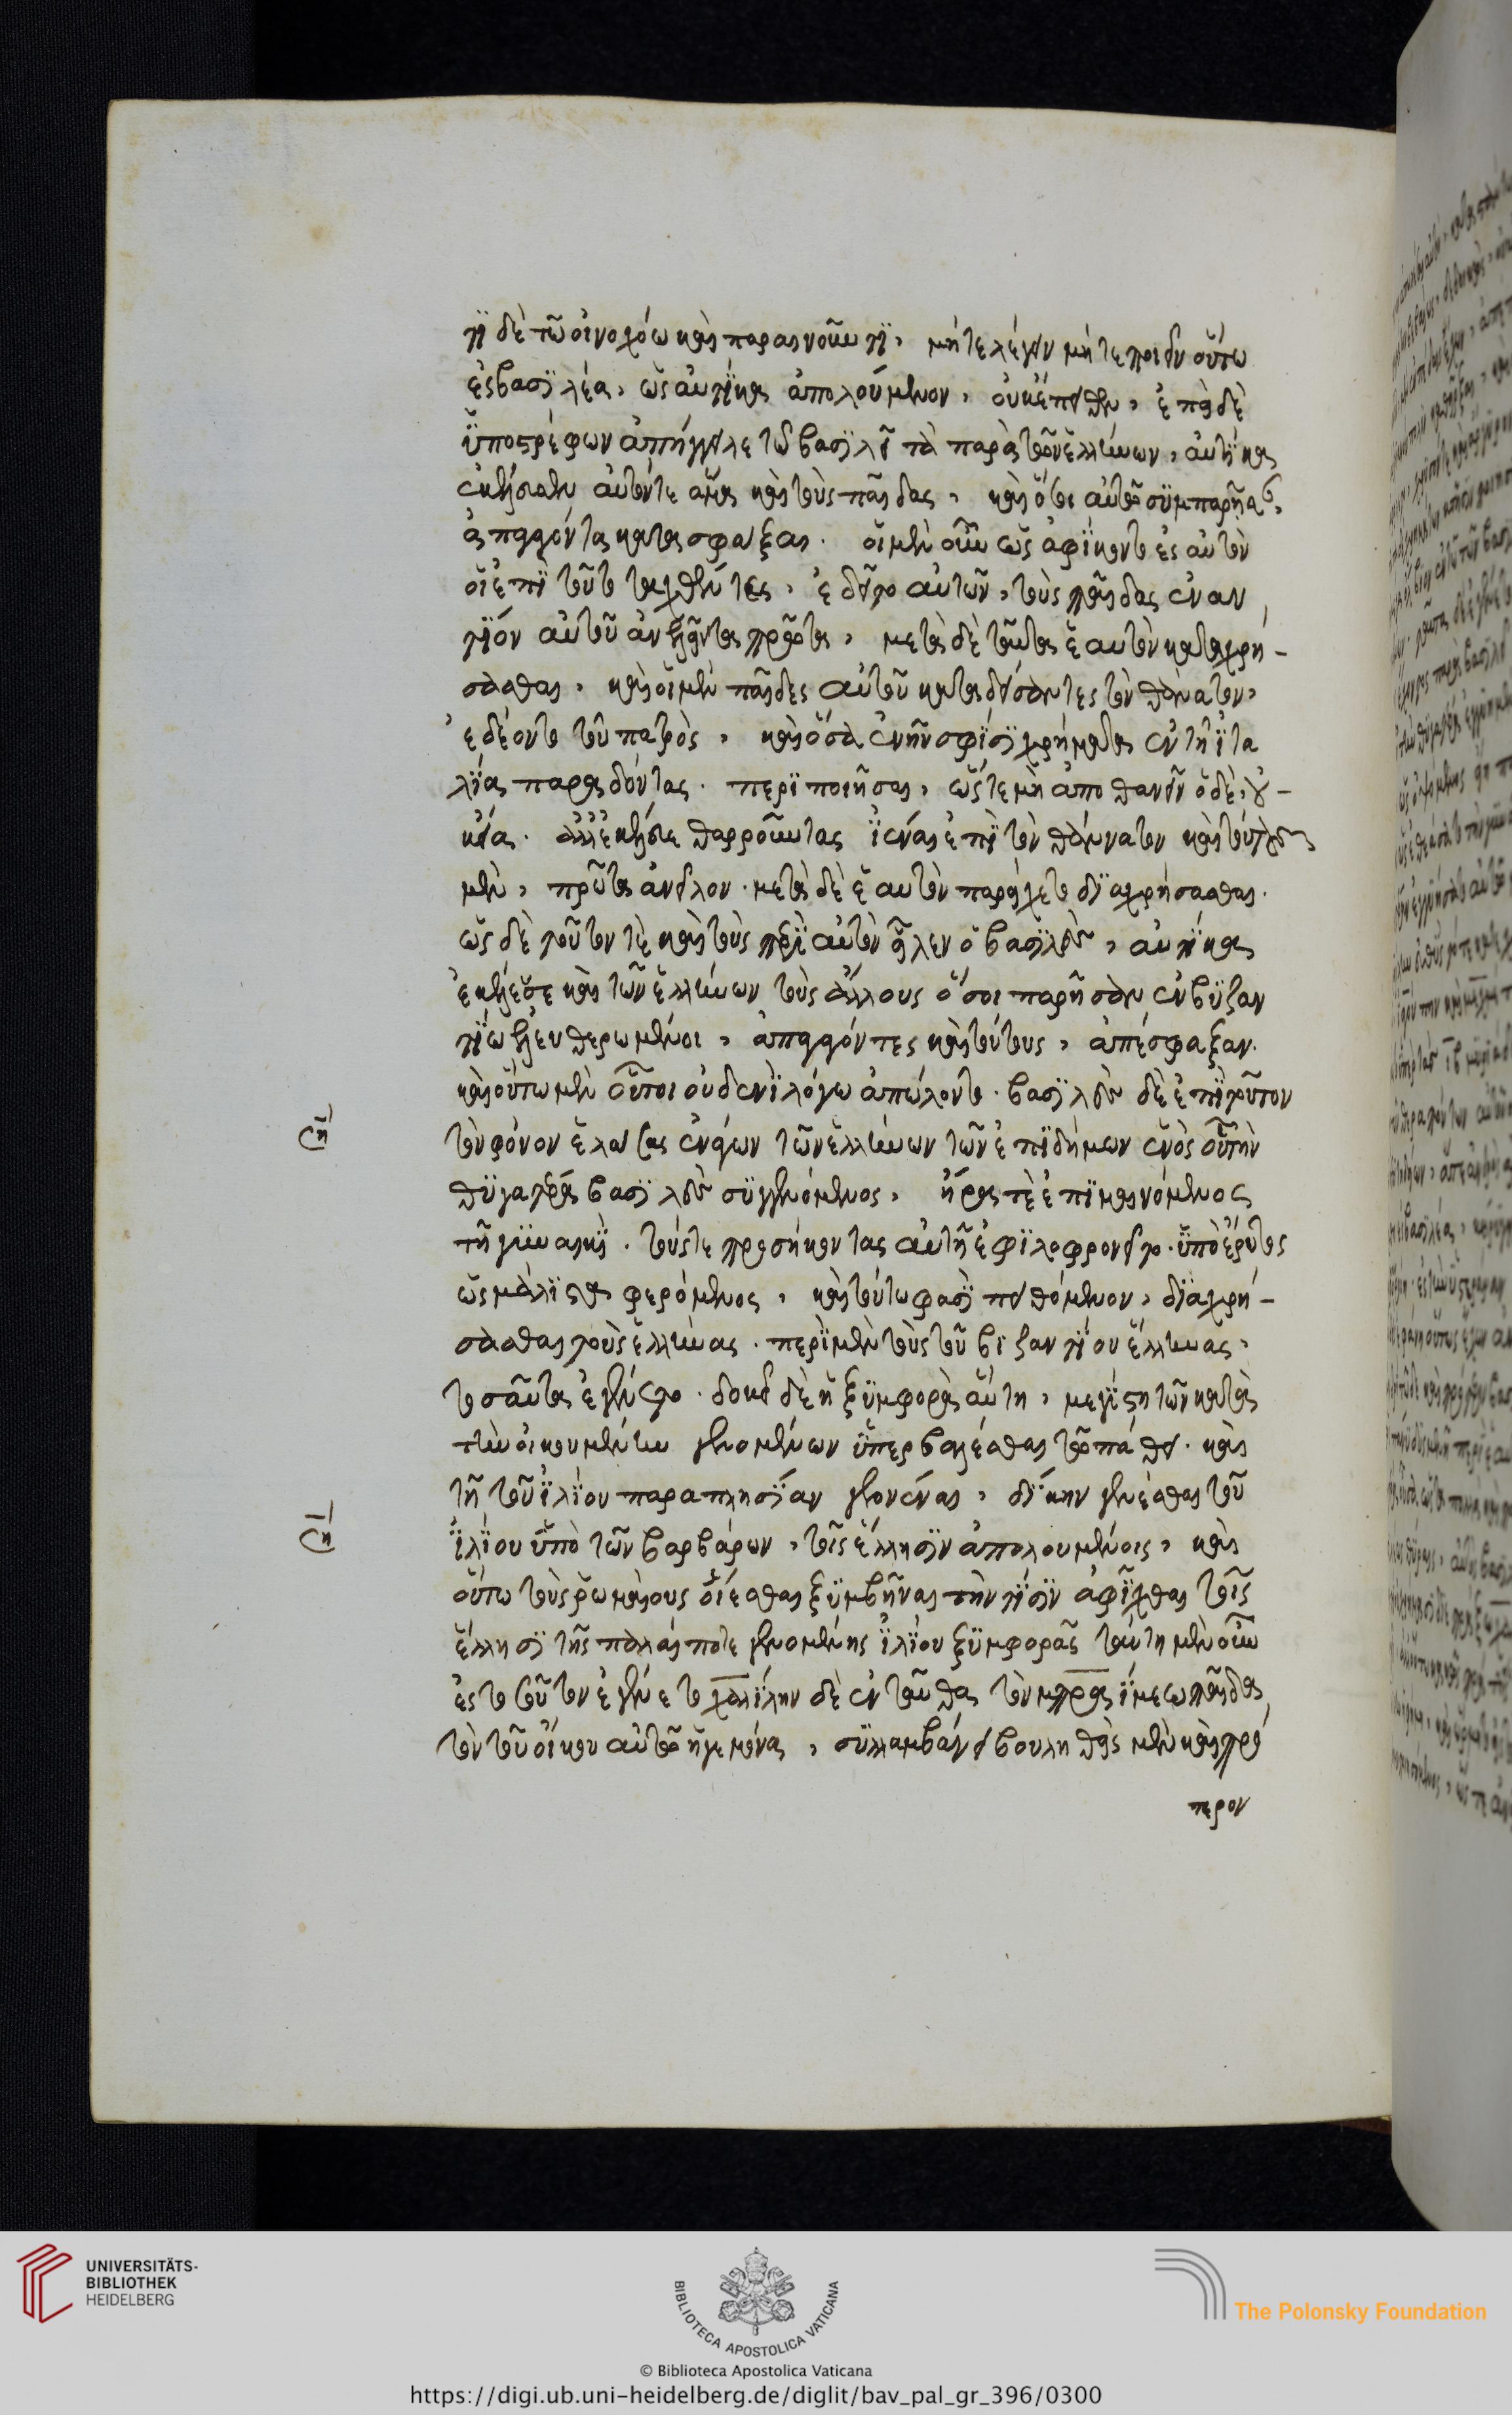 τι δὲ τῶ οἰνοχόω καὶ παραινοῦντι, μήτε λέγειν μήτε ποιεῖν οὕτω
ἐς βασιλέα, ὡς αὐτίκα ἀπολούμενον, οὐκ ἐπείθετο, ἐπεὶ δὲ
ὑποστρέφων ἀπήγγειλε τῶ βασιλεῖ τὰ παρὰ τῶν ἑλλήνων, αὐτίκα
ἐκέλευεν αὐτόν τε ἅμα καὶ τοὺς παῖδας, καὶ ὅσοι αὐτῶ συμπαρῆσαν,
ἀπαγαγόντας κατασφάξαι. οἱ μὲν οὖν ὡς ἀφίκοντο ἐς αὐτὸν
οἱ ἐπὶ τοῦτο ταχθέντες, ἐδεῖτο αὐτῶν, τοὺς παῖδας ἐναν
τίον αὐτοῦ ἀνελόντας πρῶτα, μετὰ δὲ ταῦτα ἑαυτὸν καταχρή-
σασθαι, καὶ οἱ μὲν παῖδες αὐτοῦ καταδείσαντες τὸν θάνατον,
ἐδέοντο τοῦ πατρὸς, καὶ ὅσα ἐνῆν σφίσι χρήματα ἐν τῆ ἰτα
λία παραδόντας. περιποιῆσαι, ὥστε μὴ ἀποθανεῖν ὁ δὲ, οὐ-
κ εἴα. ἀλλ' ἐκέλευε θαρροῦντας ἰέναι ἐπὶ τὸν θάνατον καὶ τούτους
μὲν, πρῶτα ἀνεῖλον. μετὰ δὲ ἑαυτὸν παρείχετο διαχρήσασθαι.
ὡς δὲ τοῦτόν τὲ καὶ τοὺς περὶ αὐτὸν εἷλεν ὁ βασιλεὺς, αὐτίκα
ἐκέλευσε καὶ τῶν ἑλλήνων τοὺς ἄλλους ὅσοι παρῆσαν ἐν βυζαν
τίω ἐλευθερωμένοι, ἀπαγαγόντες καὶ τούτους, ἀπέσφαξαν.
καὶ οὕτω μὲν οὗτοι οὐδενὶ λόγω ἀπώλοντο. βασιλεὺς δὲ ἐπὶ τοῦτον
τὸν φόνον ἐλάσας ἐνάγων τῶν ἑλλήνων τῶν ἐπιδήμων ἑνὸς οὗ τὴν
θυγατέρα βασιλεὺς συγγενόμενος, ἤρα τὲ ἐπιμαινόμενος
τῆ γυναικὶ. τούς τε προσήκοντας αὐτῆ ἐφιλοφρονεῖτο. ὑπὸ ἔρωτος
ὡς μάλιστα φερόμενος, καὶ τούτω φασὶ πειθόμενον, διαχρή-
σασθαι τοὺς ἕλληνας. περὶ μὲν τοὺς τοῦ βιζαντίου ἕλληνας,
τοσαῦτα ἐγένετο. δοκεῖ δὲ ἡ ξυμφορὰ αὕτη, μεγίστη τῶν κατὰ
τὴν οἰκουμένην γενομένων ὑπερβαλέσθαι τῶ πάθει. καὶ
τῆ τοῦ ἰλίου παραπλησίαν γεγονέναι, δίκην γενέσθαι τοῦ
ἰλίου ὑπὸ τῶν βαρβάρων, τοῖς ἕλλησιν ἀπολουμένοις, καὶ
οὕτω τοὺς ῥωμαίους οἴεσθαι ξυμβῆναι τὴν τίσιν ἀφῖχθαι τοῖς
ἕλλησι τῆς πάλαι ποτε γενομένης ἰλίου ξυμφορᾶς ταύτη μὲν οὖν
ἐς τοσοῦτον ἐγένετο χαλίλην δὲ ἐνταῦθα τὸν πραΐμεω παῖδα
τὸν τοῦ οἴκου αὐτῶ ἡγεμόνα, συλλαμβάνει βουληθεὶς μὲν καὶ πρό
τερον